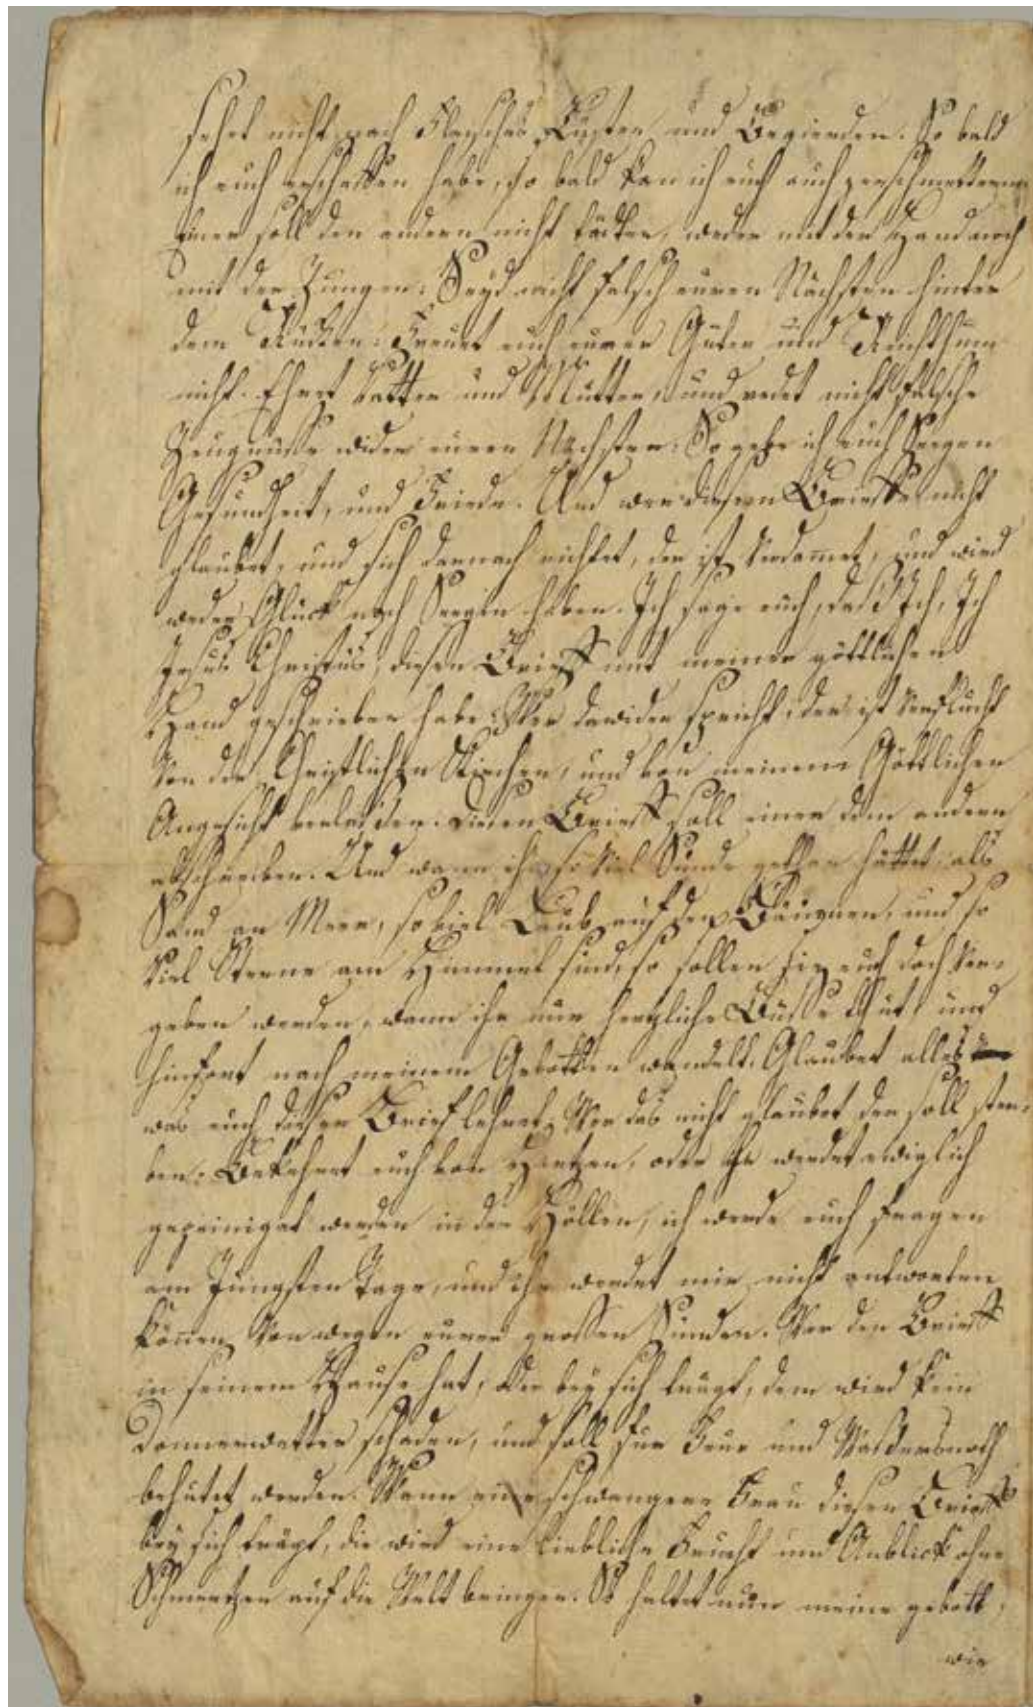 sehet nicht nach Fleisches Lüsten und Begierden. So bald
ich euch erschaffen habe, so bald kan ich euch auch zerschmettern
Einer soll den andern nicht tödten, weder mit der Hand noch
mit der Zungen: Seyd nicht falsch euren Nächsten hinter
dem Rücken: Freuet euch eurer Güter und Reichthum
nicht. Ehret Vatter und Mutter, und redet nicht falsche
Zeugnüsse wider euren Nächsten: So gebe ich euch Seegen
Gesundheit, und Friede. Und wer diesem Brieffe nicht
glaubet, und sich darnach richtet, der ist Verdamet, und wird
weder Glück noch Seegen haben. Ich sage euch, daß Ich, Ich
Jesus Christus, diesen Brieff mit meiner göttlichen
Hand geschrieben habe: Wer dawider spricht, der ist Verflucht
Von der Christlichen Kirchen, und von meinem Göttlichen
Angesicht verlassen. Diesen Brieff soll einer dem andern
abschreiben. Und wann ihr so Viel Sünde gethan hättet als
Sand am Meer, so viel Laub auf den Bäumen, und so
Viel Sterne am Himmel sind, so sollen sie euch doch Ver-
geben werden, wann ihr nur hertzliche Busse thut und
hinfort nach meinem Gebotten wandelt. Glaubet alles
was euch dieser Brief lehret, Wer das nicht glaubet der soll ster-
ben: Bekehret euch von Hertzen, oder ihr werdet ewiglich
gepeiniget werden in der Höllen, ich werde euch fragen
am Jüngsten Tage, und ihr werdet mir nicht antworten
können Von wegen eurer grossen Sünden. Wer den Brieff
in seinem Hause hat, oder bey sich trägt, dem wird kein
Donnerwetter schaden, und soll für Feur und Wassersnoth
behütet werden. Wann eine schwangere Frau diesen Brieff
bey sich trägt, die wird eine liebliche Frucht und Anblick ohne
Schmertzen auf die Welt bringen. So haltet nun meine gebott,
wie